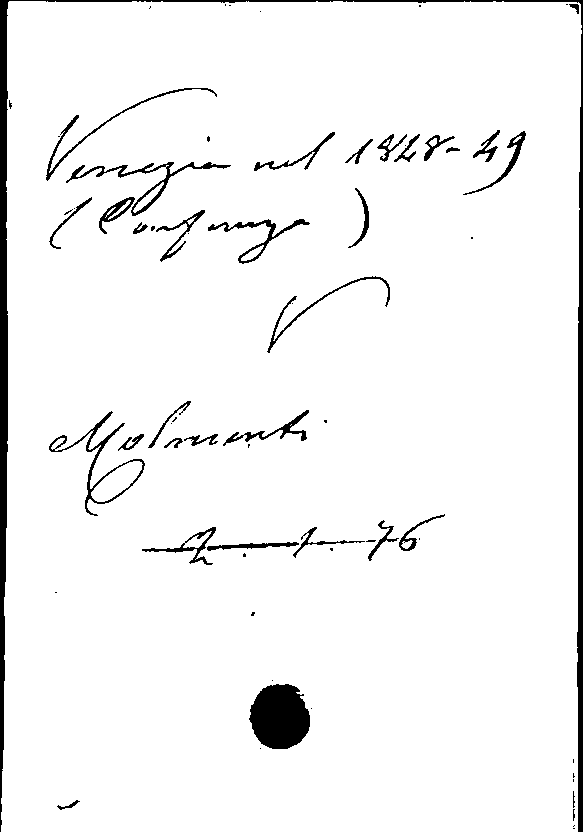 Venezia nel 1848-49
(Conferenza)
V
Molmenti
2. 1. 76